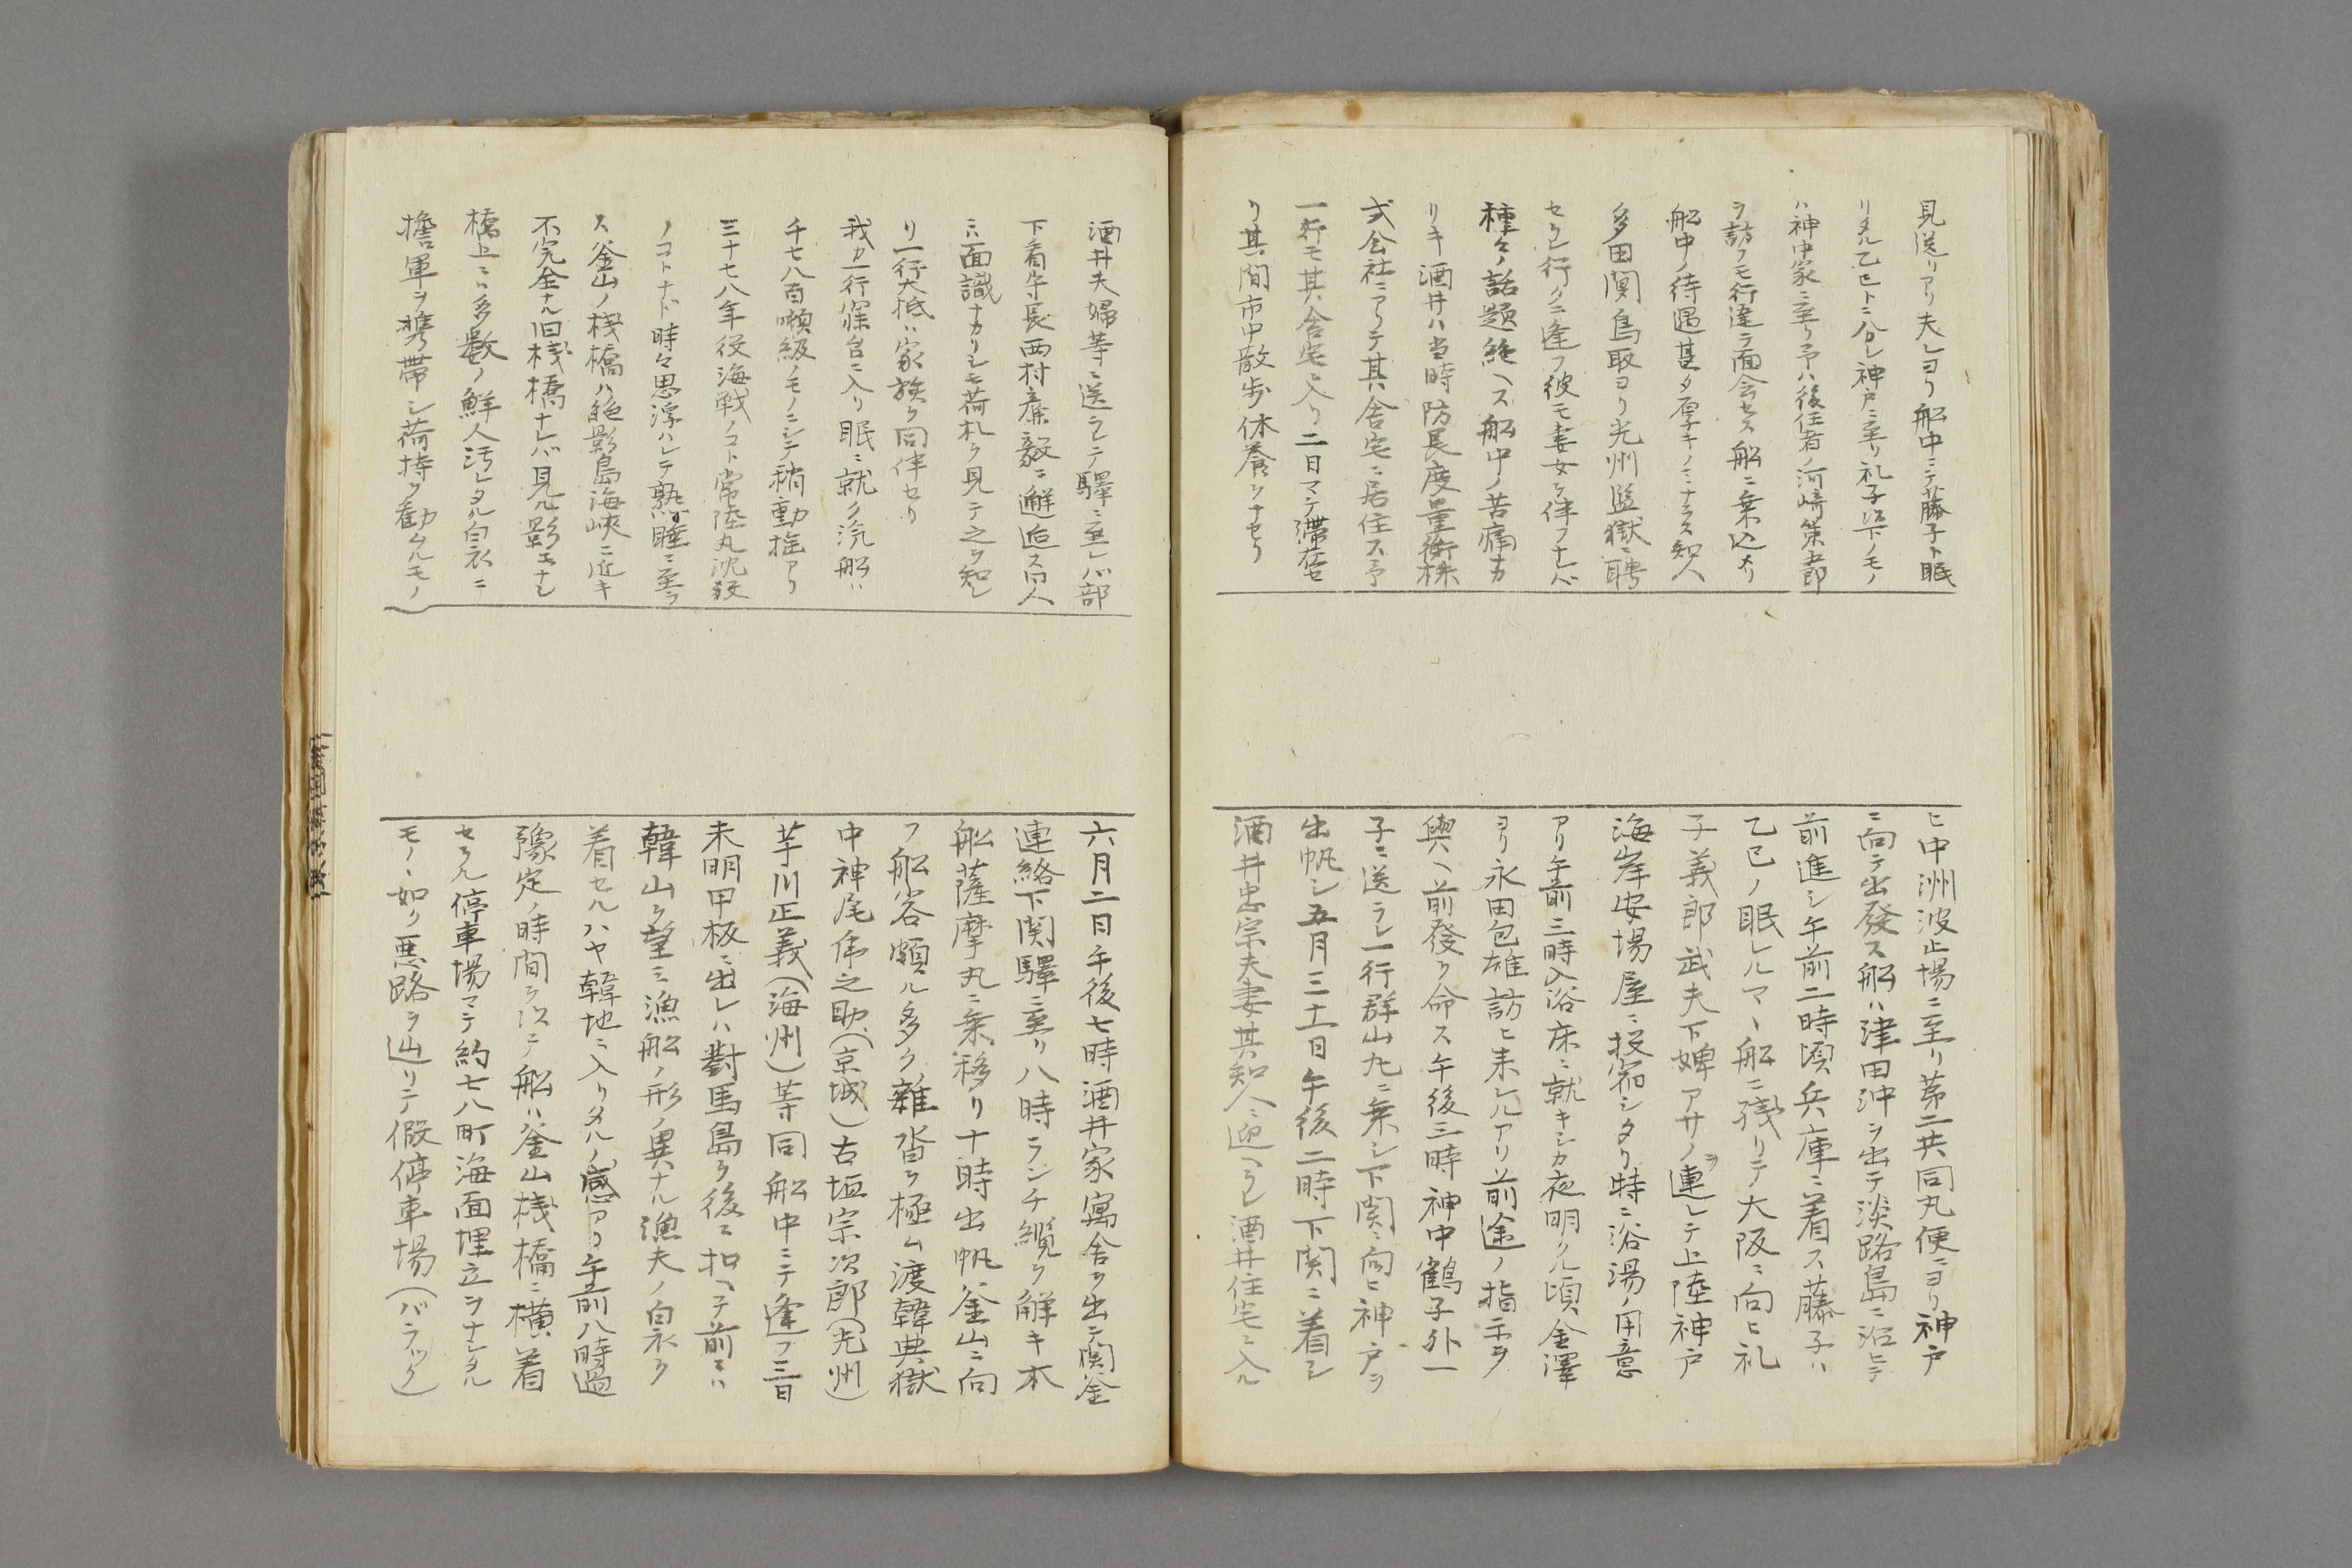 見送リアリ夫レヨリ船中ニテ藤子ト眠
リタル乙巳トニ分レ神戸ニ至リ礼子以下ノモノ
ハ神中家ニ至リ予ハ後任者ノ河﨑策郎
ヲ訪フモ行違テ面会セス船ニ乗込メリ
船中ノ待遇甚タ厚キノミナラス知人
多田関鳥取ヨリ光州監獄ニ聘
セラレ行クニ逢フ彼モ妻女ヲ伴フナレバ
種々ノ話題絶ヘス船中ノ苦痛ナカ
リキ酒井ハ当時防長度量衡株
式会社ニアリテ其舎宅ニ居住ス予
一行モ其舎宅ニ入リ二日マテ滞在セ
リ其間市中散歩休養ヲナセリ
ヒ中洲波止場ニ至リ第二共同丸便ニヨリ神戸
ニ向テ出発ス船ハ津田沖ヲ出テ淡路島ニ沿ヒテ
前進シ午前二時頃兵庫ニ着ス藤子ハ
乙巳ノ眠レルマヽ船ニ残リテ大阪ニ向ヒ礼
子義郎武夫下婢アサノヲ連レテ上陸神戸
海岸安場屋ニ投宿シタリ時ニ浴湯ノ用意
アリ午前三時入浴床ニ就キシカ夜明クル頃金澤
ヨリ永田包雄訪ヒ来レルアリ前途ノ指示ヲ
與ヘ前發ヲ命ス午後三時神中鶴子外一
子ニ送ラレ一行群山丸ニ乗シ下関ニ向ヒ神戸ヲ
出帆シ五月三十一日午後二時下関ニ着シ
酒井忠宗夫妻其知人ニ迎ヘラレ酒井住宅ニ入ル
酒井夫婦等ニ送ラレテ驛ニ至レバ部
下看守長西村廉毅ニ邂逅ス同人
ニハ面識ナカリシモ荷札ヲ見テ之ヲ知レ
リ一行大抵ハ家族ヲ同伴セリ
我カ一行寝台ニ入リ眠ニ就ク汽船ハ
千七八百噸級ノモノニシテ稍動揺アリ
三十七八年役海戦ノコト常陸丸沈没
ノコトナド時々思浮ハレテ熟睡ニ至ラ
ス釜山ノ桟橋ハ絶影島海峡ニ近キ
不完全ナル旧桟橋ナレバ見ル影モナシ
橋上ニハ多數ノ鮮人汚レタル白衣ニ
擔軍ヲ携帯シ荷持ヲ勧ムルモノ
六月二日午後七時酒井家寓舎ヲ出テ関釜
連絡下関驛ニ至リ八時ランチ纜ヲ解キ本
船薩摩丸ニ乗移リ十時出帆釜山ニ向
フ船客頗ル多ク雑沓ヲ極ム渡韓典獄
中神尾虎之助(京城)古垣宗次郎(光州)
芋川正義(海州)等同船中ニテ逢フ三日
未明甲板ニ出レハ對馬島ヲ後ニ扣ヘテ前ニハ
韓山ヲ望ミ漁船ノ形ノ異ナル漁夫ノ白衣ヲ
着セルハヤ韓地ニ入リタルノ感アリ午前八時過
豫定ノ時間ヲ以テ船ハ釜山桟橋ニ横着
セラル停車場マテ約七八町海面埋立ヲナシタル
モノヽ如ク悪路ヲ辿リテ假停車場(バラック)